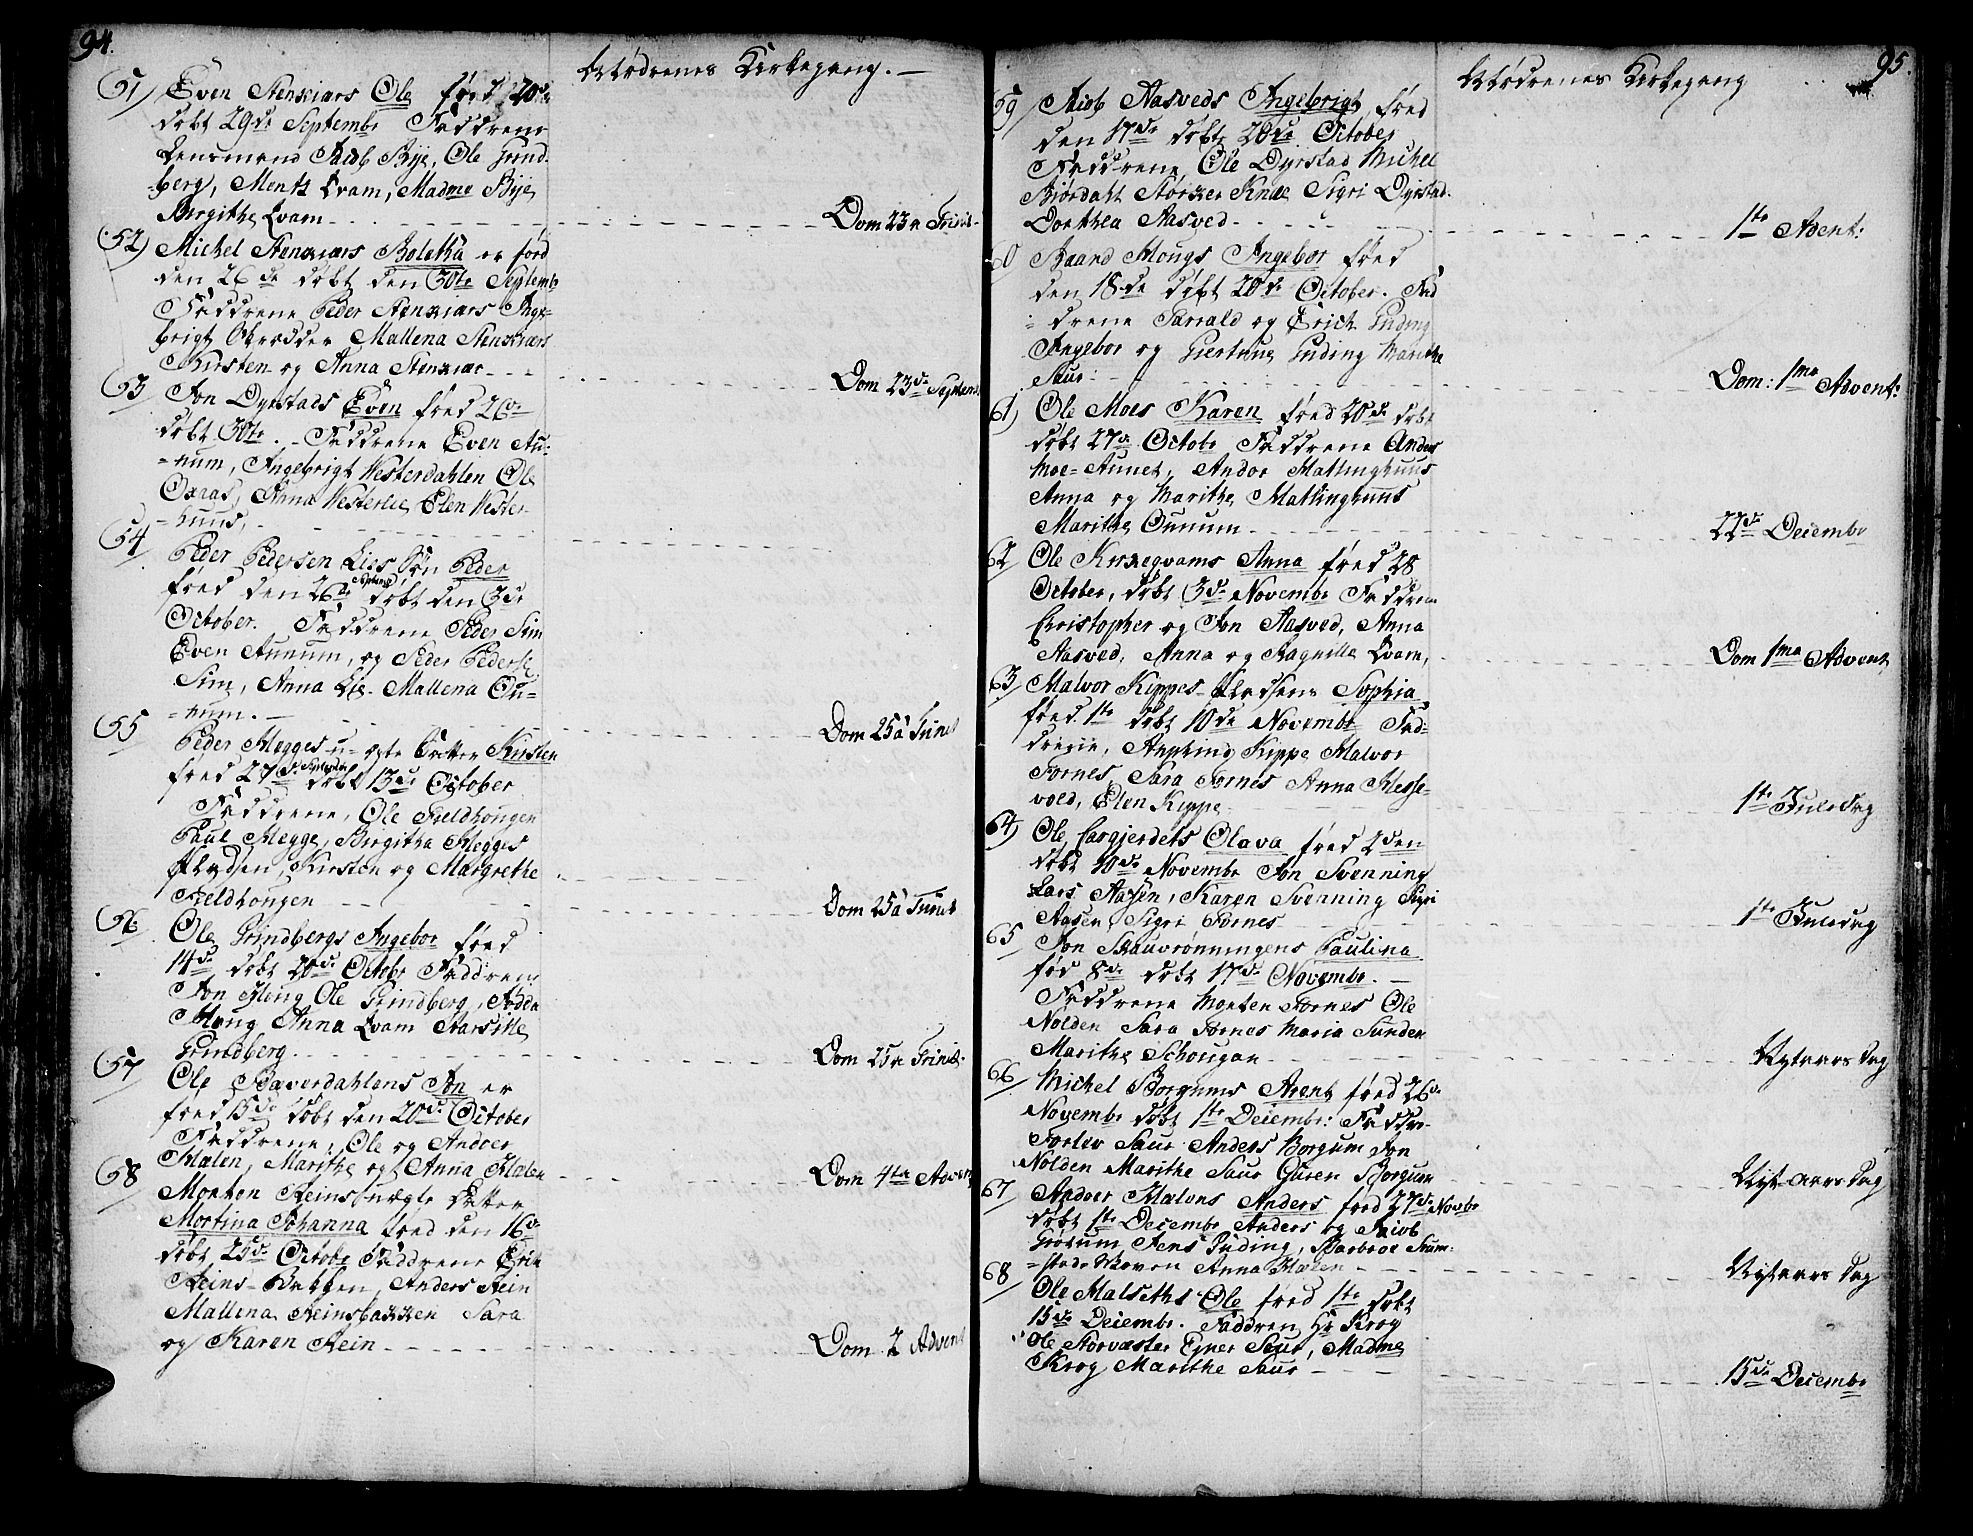 94.
Mødrenes Kirkegang. —
51) Even Stenkiærs Ole fød d 20de
døbt 29de Septembr Faddrene
Lensmand Jacob Bye, Ole Grind-
berg, Mentz Qvam, Madme Bye
Birgithe Qvam - - - Dom 23 a Trinit.
52) Michel Stenkiærs Bolethа er fød
den 26de døbt den 30te Septembr
Faddrene Peder Stenkiærs Inge-
brigt Mallena Stenkiærs
Kirsten og Anna Stenkiær - - - Dom 23de Septemb
53 Jon Dyrstads Even fød 26de
døbt 30te. - Faddrene Even Au-
=num, Ingebrigt Westerdahlen Ole
Oxaas, Anna Vesterlie Elen Wester-
=huus,
54 Peder Pedersen Lies Søn Peder
fød den 26de Septembr døbt den 3de
October. Faddrene Peder Sim
Even Aunum, og Peder Peders.
Sim, Anna Lie. Mallena Ou-
=num. - - - Dom 25 a Trinit
55 Peder Hegges u-ægte Datter Kirsten
fød 27de Septembr døbt 13de October
Faddrene, Ole Fieldhougen
Paul Hegge, Birgitha Hegges
Pladsen, Kirsten og Margrethe
Fieldhougen - - - Dom 25 a Trinit
56 Ole Grindbergs Ingebor fød
14de døbt 20de Octobr Faddrene
Jon Kleng Ole Grindberg, Jødda
Houg Anna Qvam Marsille
Grindberg. - - - Dom 25 a Trinit.
57 Ole Baverdahlens Jon er
fød 15de døbt den 20de October
Faddrene, Ole og Andoer
Hælen, Marithe og Anna Hælen - - - Dom 4ta Advent
58 Morten Reins uægte Datter
Mortina Johanna fød den 16de
døbt 25de Octobr Faddrene Erik
Reins-Bakken, Anders Rein
Mallena Reinsbakken Sara
og Karen Rein - - - Dom 2 Advent
95.
Mødrenes Kirkegang
59 Jacob Aasveds Ingebrigt fød
den 17de døbt 20de October
Faddrene, Ole Dyrstad Michel
Biørdahl Størker Knæ Sigri Dyrstad
Dorthea Aasved - - - 1ste Advent:
60 Baard Hougs Ingebor fød
den 18de døbt 20de October. Fad
=drene Harrald og Erich Guding
Ingebor og Giertrug Guding Marithe
Saur - - - Dom: 1ma Advent:
61) Ole Moes Karen fød 20de døbt
døbt 27de Octobr Faddrene Anders
Moe-Aunet, Andor Mallinghuus
Anna og Marithe, Mallinghuus
Marithe Ounum - - - 22de Decembr
62 Ole Knægqvams Anna fød 28
October, døbt 3de Novembr Faddren
Christopher og Jon Aasved, Anna
Aasved, Anna og Ragnille Qvam, - - - Dom 1ma Advent
63 Halvor Kippes-Pladsens Sophia
fød 1ste døbt 10de Novembr Fad-
drene, Kippe Halvor
Fornes, Sara Fornes Anna Hesse-
vold, Elen Kippe - - - 1ste Juledag
64) Ole Cargjerdets Olava fød 2den
døbt 10de Novembr Jon Svenning
Lars Aasen, Karen Svenning Sigri
Aasen, Sigri Fornes - - - 1ste Juledag
65 Jon Skauvrønningens Paulina
fød 8de døbt 17de Novembr. -
Faddrene Morten Fornes Ole
Nolden Sara Fornes Maria Sunden
Marithe Schougan - - - Nytaars Dag
66 Michel Borgums Arent fød 26de
Novembr døbt 1ste Decembr: Faddre
Torlev Saur Anders Borgum Jon
Nolden Marithe Saur Guren Borgum - - - Nyt-aars Dag
67 Andoer Hælens Anders fød 27de Novbr
døbt 1ste Decembr Anders og Jacob
Grørum Jens Guding, Barbroe Sum-
=stads Moren Anna Hælen - - - Nytaars Dag
68 Ole Malseths Ole fød 1ste døbt
15de Decembr. Faddren Hr Krog
Ole Storvæster Ejner Saur, Madme
Krog Marithe Saur - - - 15de Decembr